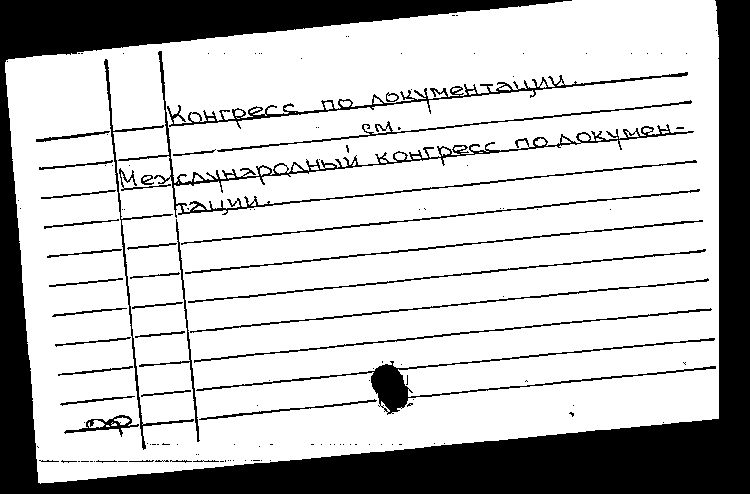 Конгресс по документации.
см.
Международный конгресс по докумен-
тации.